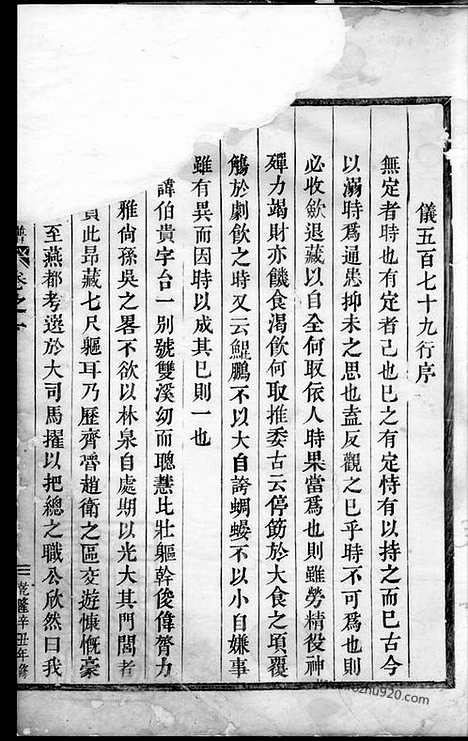 儀五百七十九行序
無定者時也有定者己也巳之有定恃有以持之而巳古今
以溺時爲通患抑未之思也盍反觀之已乎時不可爲也則
必收歛退藏以自全何取依人時果當爲也則雖勞精役神
殫力竭財亦饑食渴飲何取推委古云停筯於大食之頃覆
觴於劇飲之時又云鯤鵬不以大自誇蜩蟃不以小自嫌事
雖有異而因時以成其巳則一也
諱伯貴字台一別號雙溪幼而聰慧比壯軀幹俊偉膂力
雅尙孫吳之畧不欲以林泉自處期以光大其門閭者
此昂藏七尺軀耳乃歷齊晉趙衛之區交遊慷慨豪
至燕都考選於大司馬擢以把總之職公欣然曰我
卷之
乾隆辛丑年修